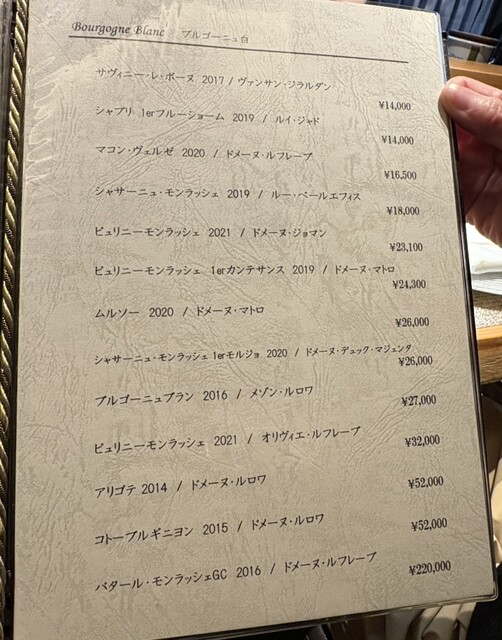 Bourgogne Blanc ブルゴーニュ白
サヴィニー・レ・ボーヌ 2017 / ヴァンサン・ジラルダン
¥14,000
シャブリ 1erフルーショーム 2019 / ルイ・ジャド
¥14,000
マコン・ヴェルゼ 2020 / ドメーヌ・ルフレーブ
¥16,500
シャサーニュ・モンラッシェ 2019 / ルー・ペールエフィス
¥18,000
ピュリニーモンラッシェ 2021 / ドメーヌ・ジョマン
¥23,100
ピュリニーモンラッシェ 1erカンテサンス 2019 / ドメーヌ・マトロ
¥24,300
ムルソー 2020 / ドメーヌ・マトロ
¥26,000
シャサーニュ・モンラッシェ1erモルジョ 2020 / ドメーヌ・デュック・マジェンタ
¥26,000
ブルゴーニュブラン 2016 / メゾン・ルロワ
¥27,000
ピュリニーモンラッシェ 2021 / オリヴィエ・ルフレーブ
¥32,000
アリゴテ 2014 / ドメーヌ・ルロワ
¥52,000
コトーブルギニヨン 2015 / ドメーヌ・ルロワ
¥52,000
バタール・モンラッシェGC 2016 / ドメーヌ・ルフレーブ
¥220,000